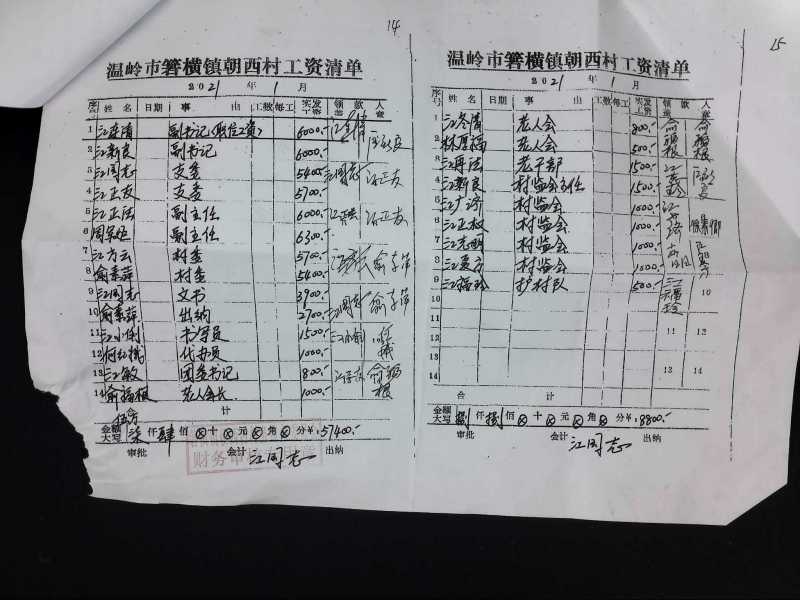 14
温岭市箬横镇朝西村工资清单
2021年1月
序号 姓名 日期 事由 工数 每工 实发工资 领款人盖章
1 副书记(职位工资) 6000.-
2 江新良 副书记 6000.-
3 江周志 支委 5400.- 江周志 江正友
4 江正友 支委 5700.-
5 江正法 副主任 6000.- 江正友
6 副主任 6300.-
7 江方云 村委 5700.-
8 俞素萍 村委 5400.-
9 江周志 文书 3900.- 江周志
10 俞素萍 出纳 2700.-
11 江小俐 书写员 1500.- 江小俐
12 代办员 1000.-
13 江敏 团委书记 800.- 俞福根
14 俞福根 老人会长 1000.-
合计
金额大写 伍万柒仟肆佰⊗十⊗元⊗角⊗分¥.57400.-
审批 会计 江周志 出纳
财务审
15
温岭市箬横镇朝西村工资清单
2021年1月
序号 姓名 日期 事由 工数 每工 实发工资 领款人盖章
1 江冬清 老人会 800.- 俞福根 俞福根
2 林厚福 老人会 500.-
3 江再法 老干部 1500.-
4 江新良 村监会主任 1500.-
5 江广济 村监会 1000.-
6 江正权 村监会 1000.-
7 江光明 村监会 1000.-
8 江夏方 村监会 1000.-
9 江福玲 护村队 500.- 江福玲
10 10
11 11 12
12
13 13 14
14
合计
金额大写 捌仟捌佰⊗十⊗元⊗角⊗分¥.8800.-
审批 会计 江周志 出纳